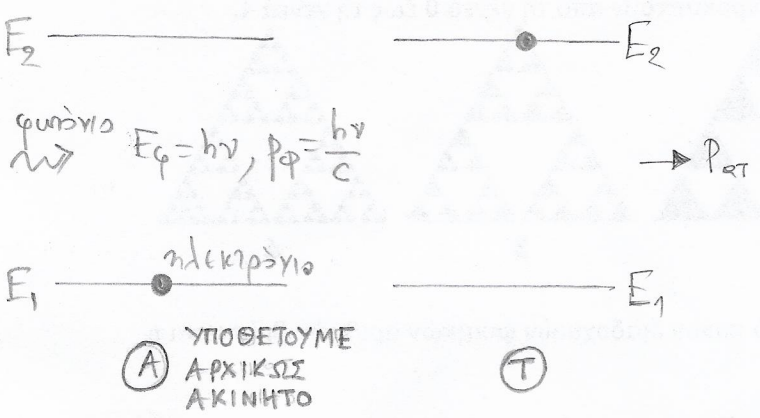 E₂
E₂
φωτόνιο
E_φ = hν, p_φ = hν/c
P_ατ
E₁ ηλεκτρόνιο
E₁
Α ΥΠΟΘΕΤΟΥΜΕ
ΑΡΧΙΚΩΣ
ΑΚΙΝΗΤΟ
Τ